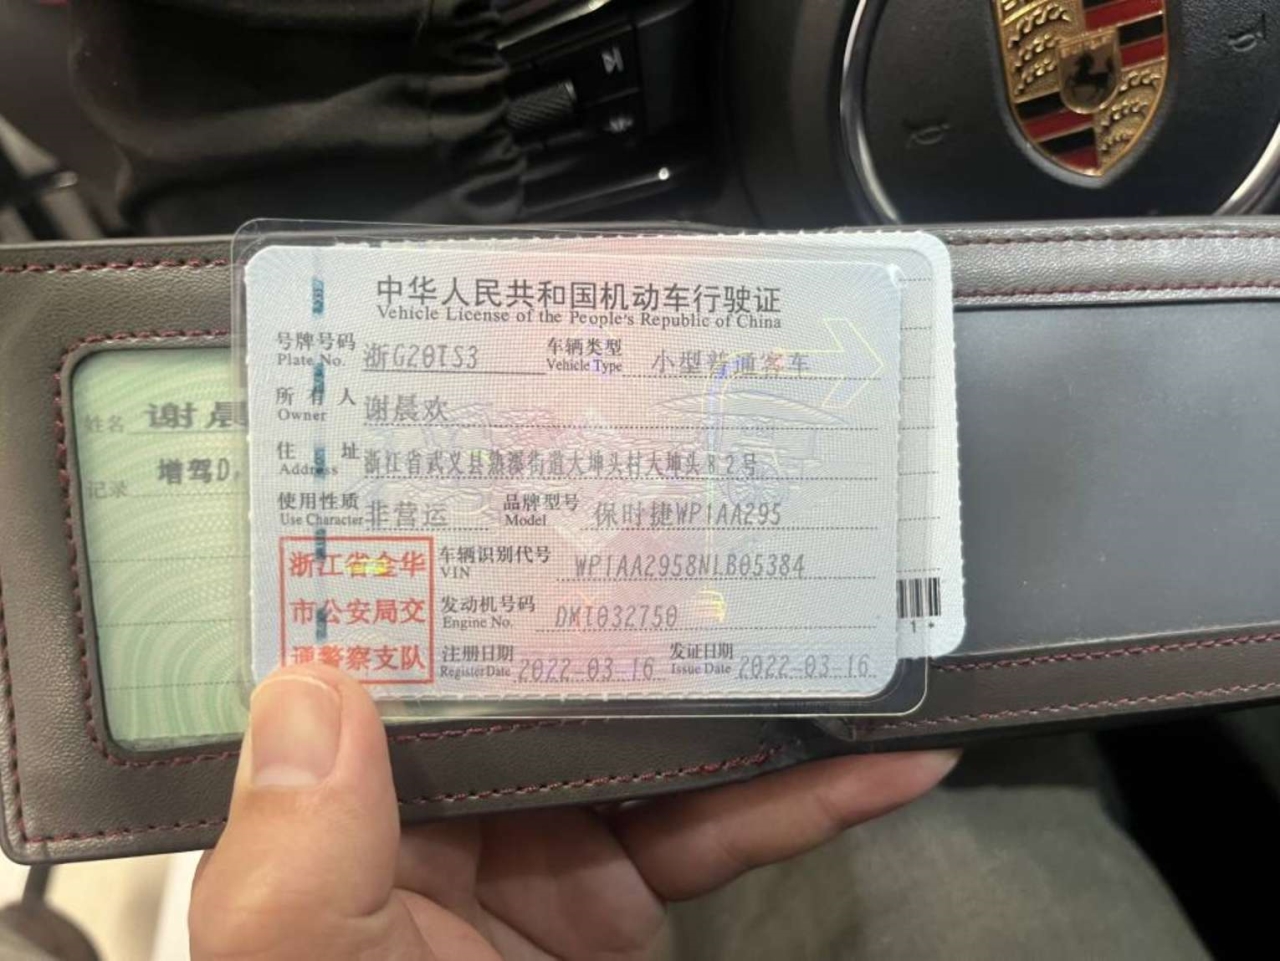 中华人民共和国机动车行驶证
Vehicle License of the People's Republic of China
号牌号码 浙G20TS3 车辆类型 小型普通客车
Plate No. Vehicle Type
所有人 谢晨欢
Owner
住址 浙江省武义县熟溪街道大坤头村大坤头82号
Address
使用性质 非营运 品牌型号 保时捷WP1AA295
Use Character Model
浙江省金华
市公安局交
通警察支队
车辆识别代号 WP1AA2958NLB05384
VIN
发动机号码 DMT032750
Engine No.
注册日期 2022-03-16 发证日期 2022-03-16
Register Date Issue Date
姓名 谢晨
增驾D
记录
1*